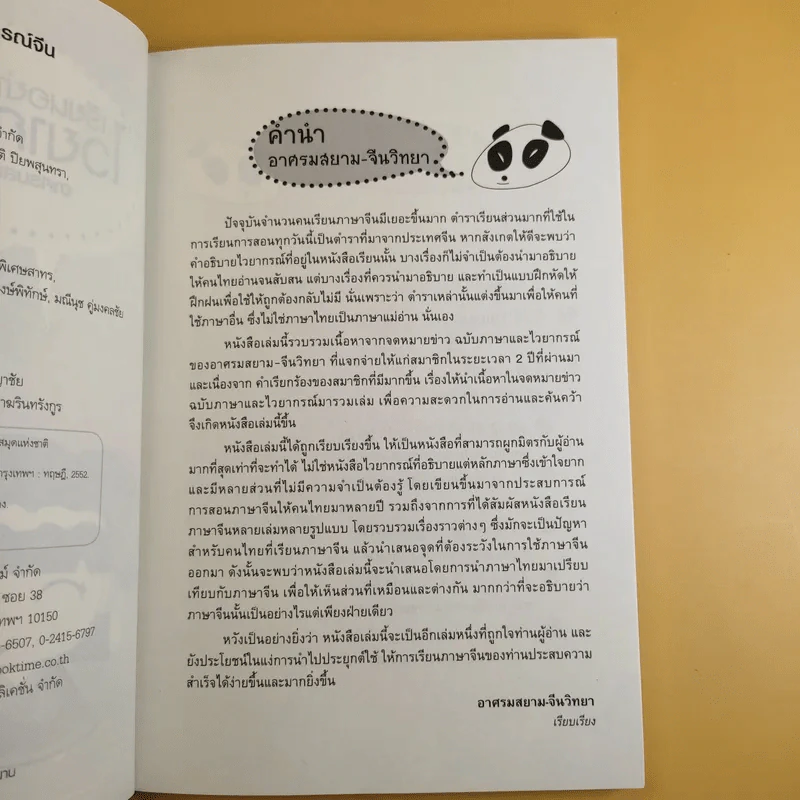 รณ์จีน
จำกัด
ติ ปิยพสุนทรา,
พิเศษสาทร,
งษ์พิทักษ์, มณีนุช คู่มงคลชัย
ญาชัย
าฆรินทรังกูร
สมุดแห่งชาติ
กรุงเทพฯ : ทฤษฎี, 2552.
มี จำกัด
ซอย 38
เทพฯ 10150
-6507, 0-2415-6797
ooktime.co.th
ลิเคชั่น จำกัด
คำนำ
อาศรมสยาม-จีนวิทยา
ปัจจุบันจำนวนคนเรียนภาษาจีนมีเยอะขึ้นมาก ตำราเรียนส่วนมากที่ใช้ใน
การเรียนการสอนทุกวันนี้เป็นตำราที่มาจากประเทศจีน หากสังเกตให้ดีจะพบว่า
คำอธิบายไวยากรณ์ที่อยู่ในหนังสือเรียนนั้น บางเรื่องก็ไม่จำเป็นต้องนำมาอธิบาย
ให้คนไทยอ่านจนสับสน แต่บางเรื่องที่ควรนำมาอธิบาย และทำเป็นแบบฝึกหัดให้
ฝึกฝนเพื่อใช้ให้ถูกต้องกลับไม่มี นั่นเพราะว่า ตำราเหล่านั้นแต่งขึ้นมาเพื่อให้คนที่
ใช้ภาษาอื่น ซึ่งไม่ใช่ภาษาไทยเป็นภาษาแม่อ่าน นั่นเอง
หนังสือเล่มนี้รวบรวมเนื้อหาจากจดหมายข่าว ฉบับภาษาและไวยากรณ์
ของอาศรมสยาม-จีนวิทยา ที่แจกจ่ายให้แก่สมาชิกในระยะเวลา 2 ปีที่ผ่านมา
และเนื่องจาก คำเรียกร้องของสมาชิกที่มีมากขึ้น เรื่องให้นำเนื้อหาในจดหมายข่าว
ฉบับภาษาและไวยากรณ์มารวมเล่ม เพื่อความสะดวกในการอ่านและค้นคว้า
จึงเกิดหนังสือเล่มนี้ขึ้น
หนังสือเล่มนี้ได้ถูกเรียบเรียงขึ้น ให้เป็นหนังสือที่สามารถผูกมิตรกับผู้อ่าน
มากที่สุดเท่าที่จะทำได้ ไม่ใช่หนังสือไวยากรณ์ที่อธิบายแต่หลักภาษาซึ่งเข้าใจยาก
และมีหลายส่วนที่ไม่มีความจำเป็นต้องรู้ โดยเขียนขึ้นมาจากประสบการณ์
การสอนภาษาจีนให้คนไทยมาหลายปี รวมถึงจากการที่ได้สัมผัสหนังสือเรียน
ภาษาจีนหลายเล่มหลายรูปแบบ โดยรวบรวมเรื่องราวต่างๆ ซึ่งมักจะเป็นปัญหา
สำหรับคนไทยที่เรียนภาษาจีน แล้วนำเสนอจุดที่ต้องระวังในการใช้ภาษาจีน
ออกมา ดังนั้นจะพบว่าหนังสือเล่มนี้จะนำเสนอโดยการนำภาษาไทยมาเปรียบ
เทียบกับภาษาจีน เพื่อให้เห็นส่วนที่เหมือนและต่างกัน มากกว่าที่จะอธิบายว่า
ภาษาจีนนั้นเป็นอย่างไรแต่เพียงฝ่ายเดียว
หวังเป็นอย่างยิ่งว่า หนังสือเล่มนี้จะเป็นอีกเล่มหนึ่งที่ถูกใจท่านผู้อ่าน และ
ยังประโยชน์ในแง่การนำไปประยุกต์ใช้ ให้การเรียนภาษาจีนของท่านประสบความ
สำเร็จได้ง่ายขึ้นและมากยิ่งขึ้น
อาศรมสยาม-จีนวิทยา
เรียบเรียง